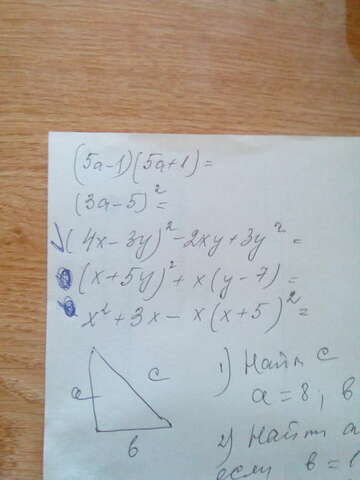 (5a-1)(5a+1)=
(3a-5)²=
(4x-3y)²-2xy+3y²=
(x+5y)²+x(y-7)=
x²+3x-x(x+5)²=
a
c
в
1) Найти с
a=8, в
2) Найти а
если в=